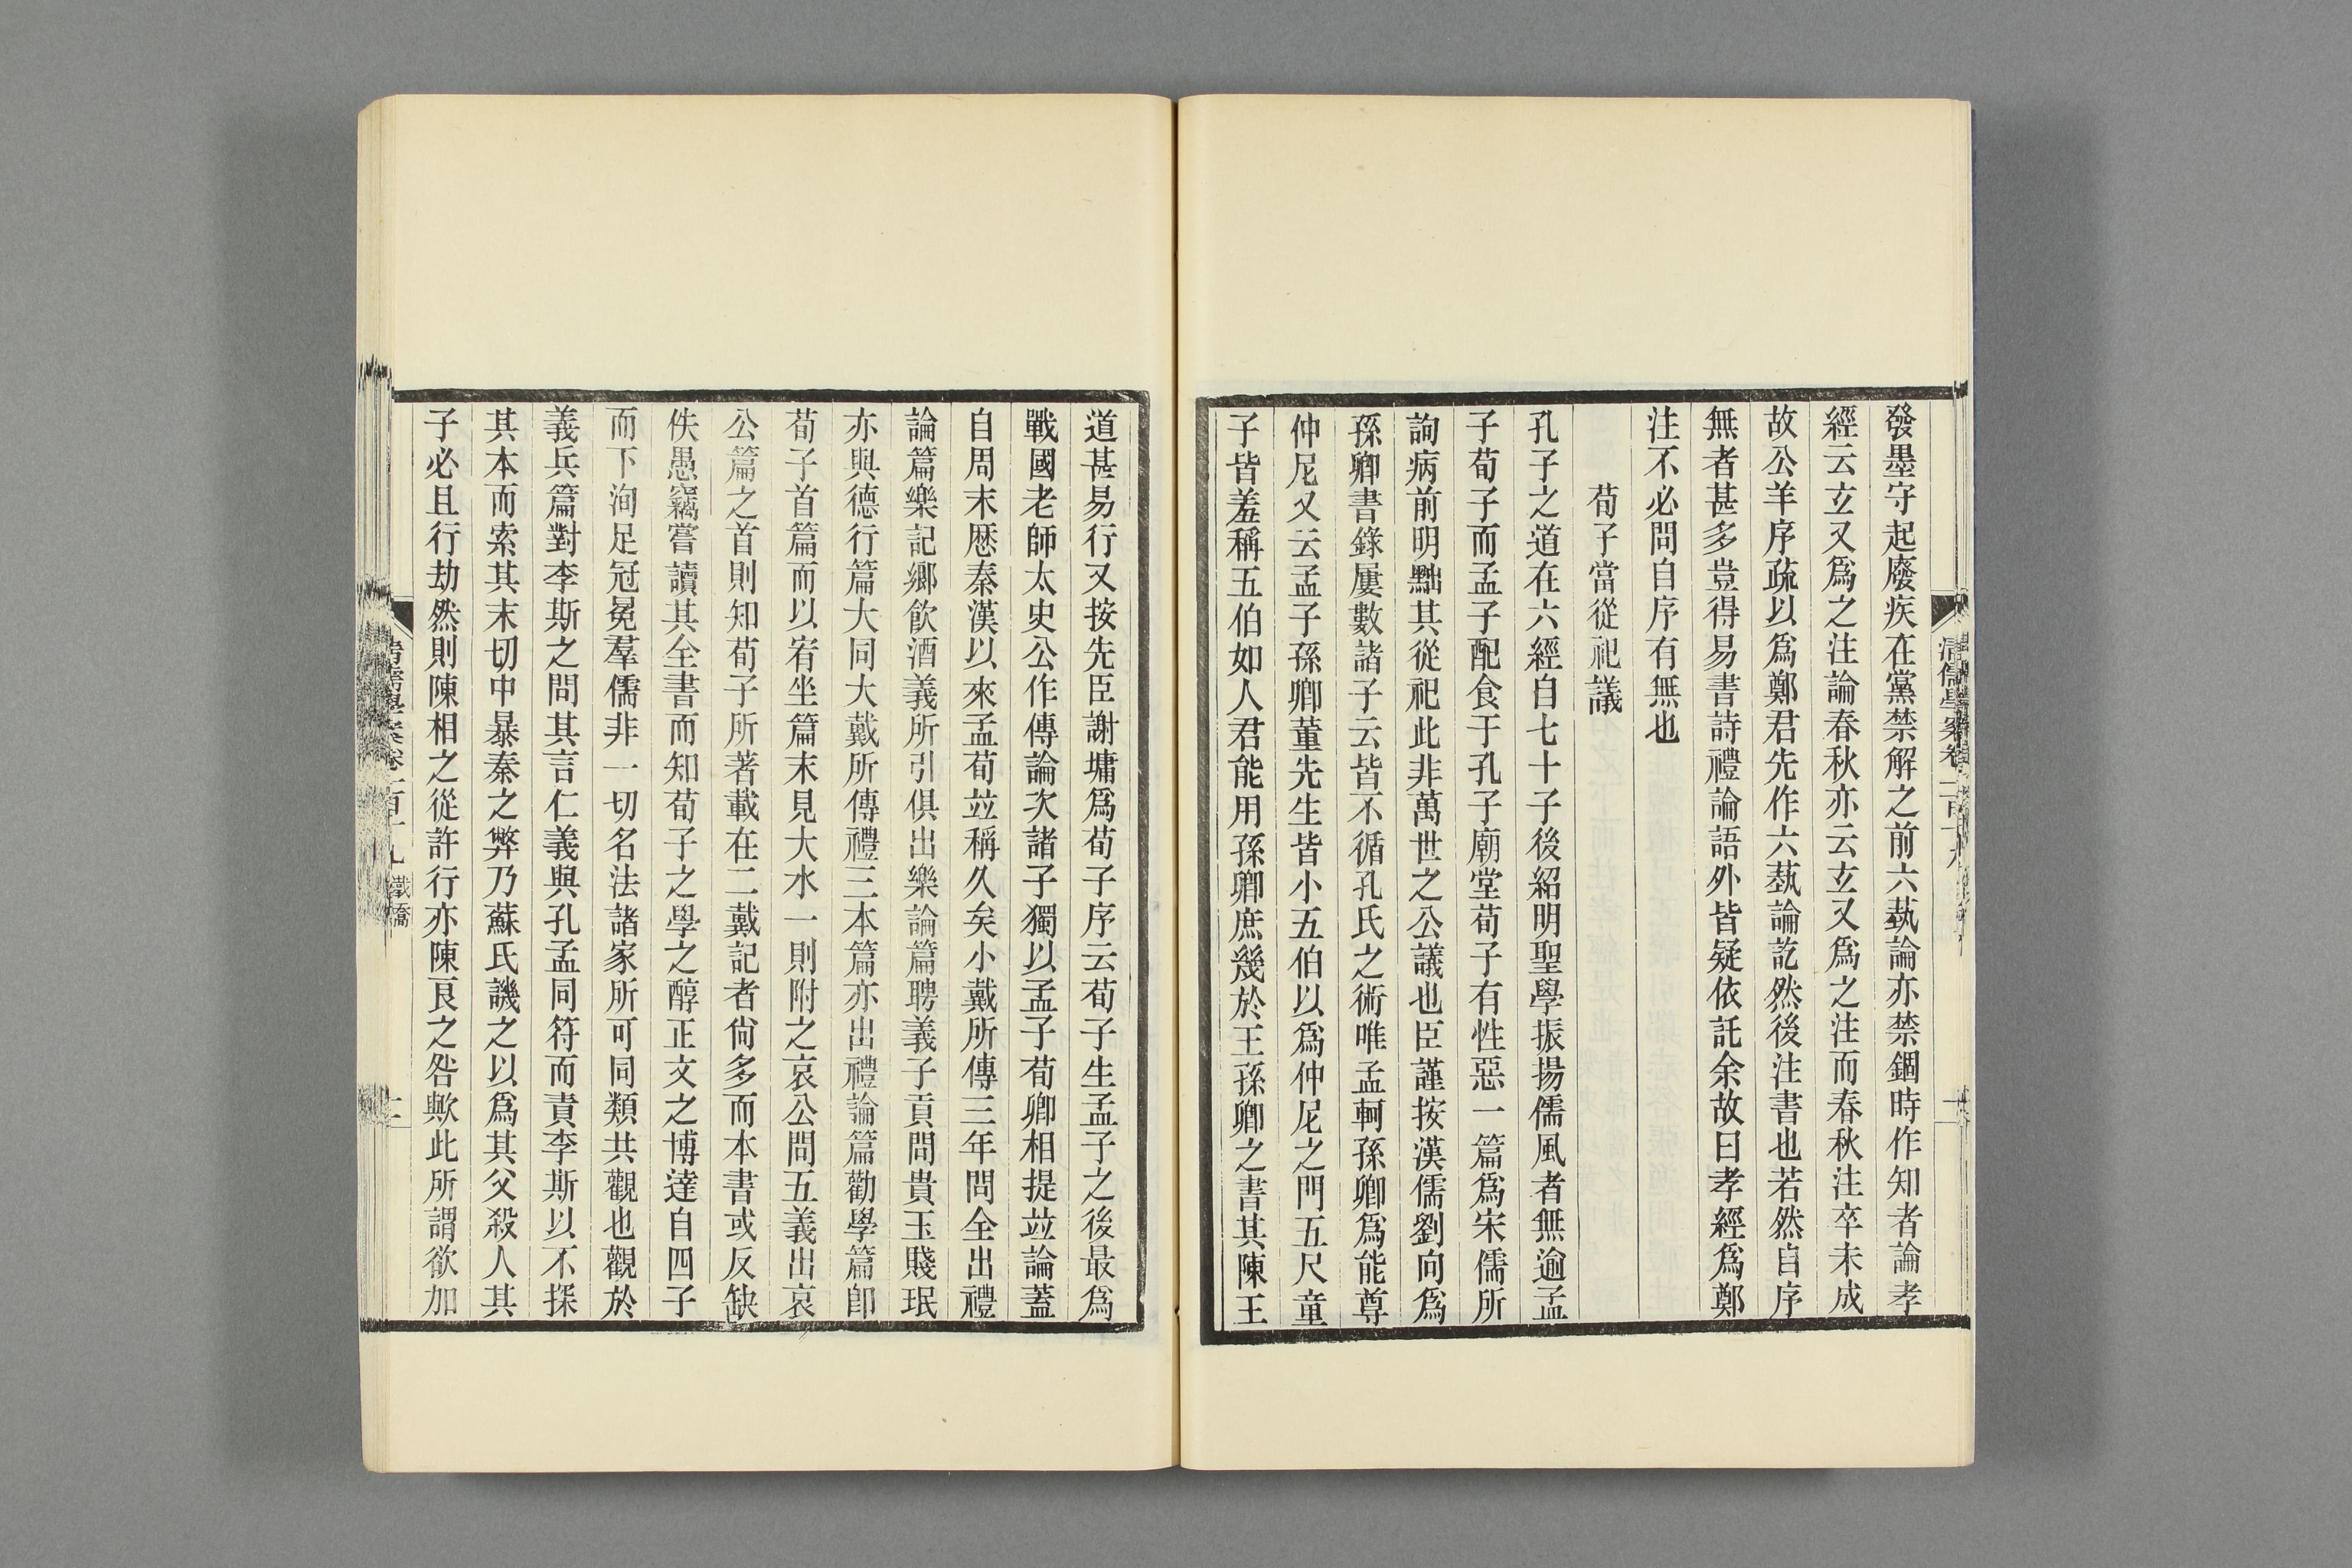 發墨守起廢疾在黨禁解之前六蓺論亦禁錮時作知者論孝
經云玄又爲之注論春秋亦云玄又爲之注而春秋注卒未成
故公羊序疏以爲鄭君先作六蓺論訖然後注書也若然自序
無者甚多豈得易書詩禮論語外皆疑依託余故曰孝經爲鄭
注不必問自序有無也
荀子當從祀議
孔子之道在六經自七十子後紹明聖學振揚儒風者無逾孟
子荀子而孟子配食于孔子廟堂荀子有性惡一篇爲宋儒所
詢病前明黜其從祀此非萬世之公議也臣謹按漢儒劉向爲
孫卿書錄屢數諸子云皆不循孔氏之術唯孟軻孫卿爲能尊
仲尼又云孟子孫卿董先生皆小五伯以爲仲尼之門五尺童
子皆羞稱五伯如人君能用孫卿庶幾於王孫卿之書其陳王
道甚易行又按先臣謝墉爲荀子序云荀子生孟子之後最爲
戰國老師太史公作傳論次諸子獨以孟子荀卿相提竝論蓋
自周末歷秦漢以來孟荀竝稱久矣小戴所傳三年問全出禮
論篇樂記鄉飲酒義所引俱出樂論篇聘義子貢問貴玉賤珉
亦與德行篇大同大戴所傳禮三本篇亦出禮論篇勸學篇卽
荀子首篇而以宥坐篇末見大水一則附之哀公問五義出哀
公篇之首則知荀子所著載在二戴記者尙多而本書或反缺
佚愚竊嘗讀其全書而知荀子之學之醇正文之博達自四子
而下洵足冠冕羣儒非一切名法諸家所可同類共觀也觀於
義兵篇對李斯之問其言仁義與孔孟同符而責李斯以不探
其本而索其末切中暴秦之弊乃蘇氏譏之以爲其父殺人其
子必且行劫然則陳相之從許行亦陳良之咎歟此所謂欲加
清儒學案卷一百十九
鐵橋